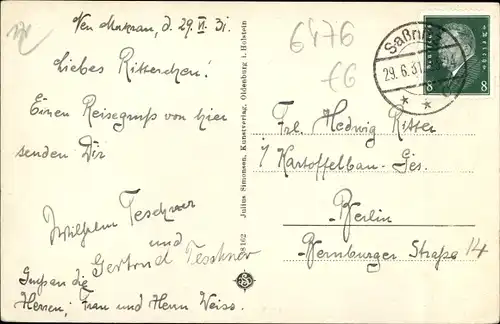 Neu Mukran, d. 29. VI. 31.
Liebes Ritterchen!
Einen Reisegruß von hier
senden Dir
Wilhelm Teschner
und
Gertrud Teschner
Gruß an die
Herren, Frau und Herrn Weiss.
Julius Simonsen, Kunstverlag, Oldenburg i. Holstein
8162
6476
£6
Saßnitz
29.6.31
8 8
Frl. Hedwig Ritter
Kartoffelbau-Ges.
Berlin
Bernburger Straße 14